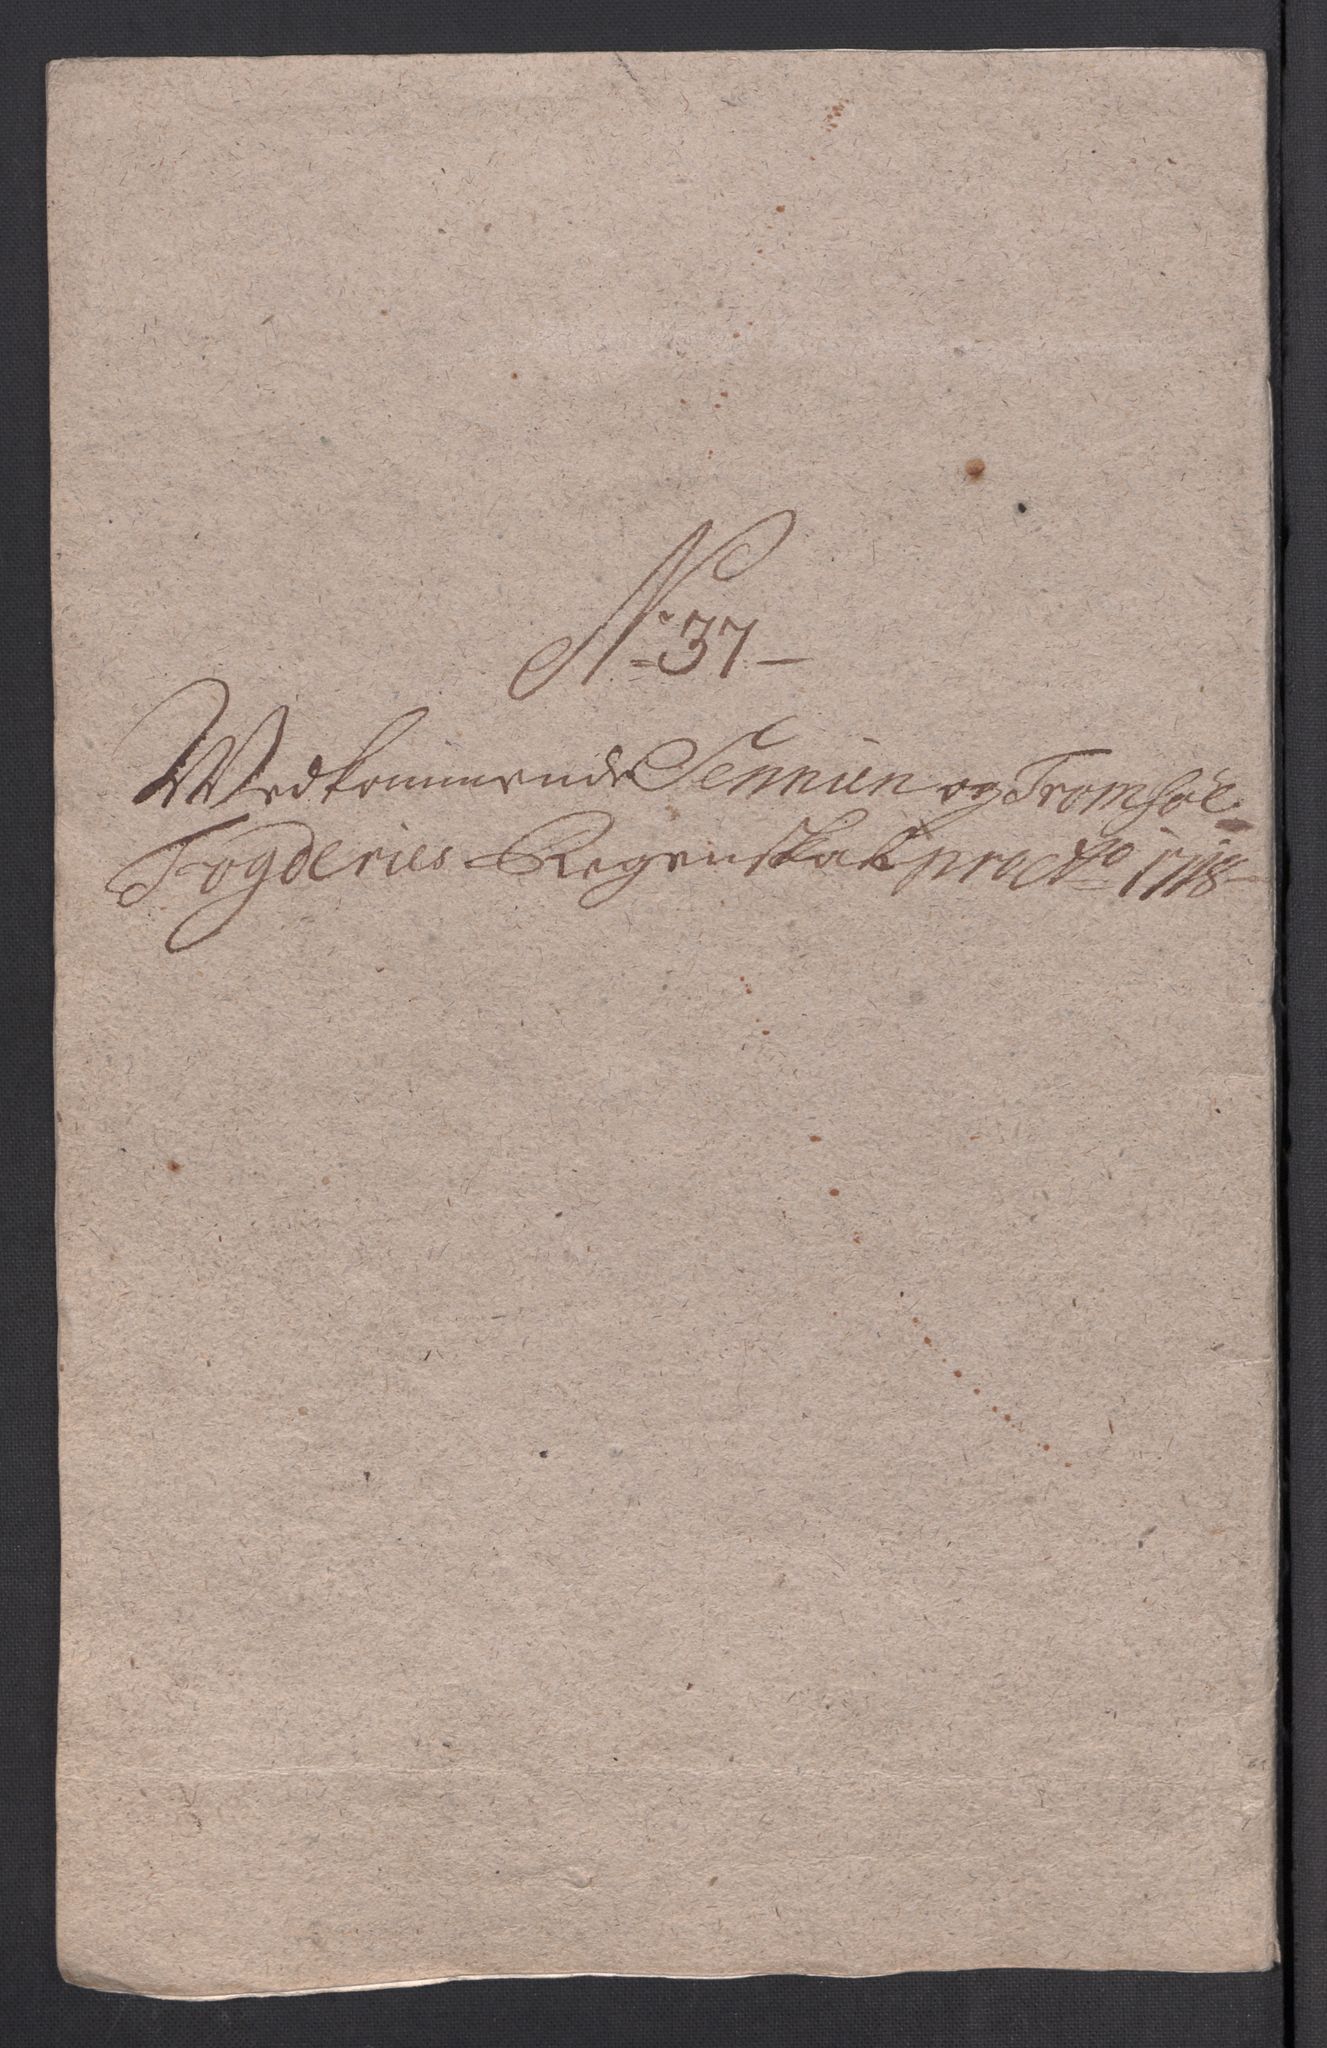 No: 37-
Wedkommende Sennien og Tromsøe
Fogderies Regenskab pro Ao 1718